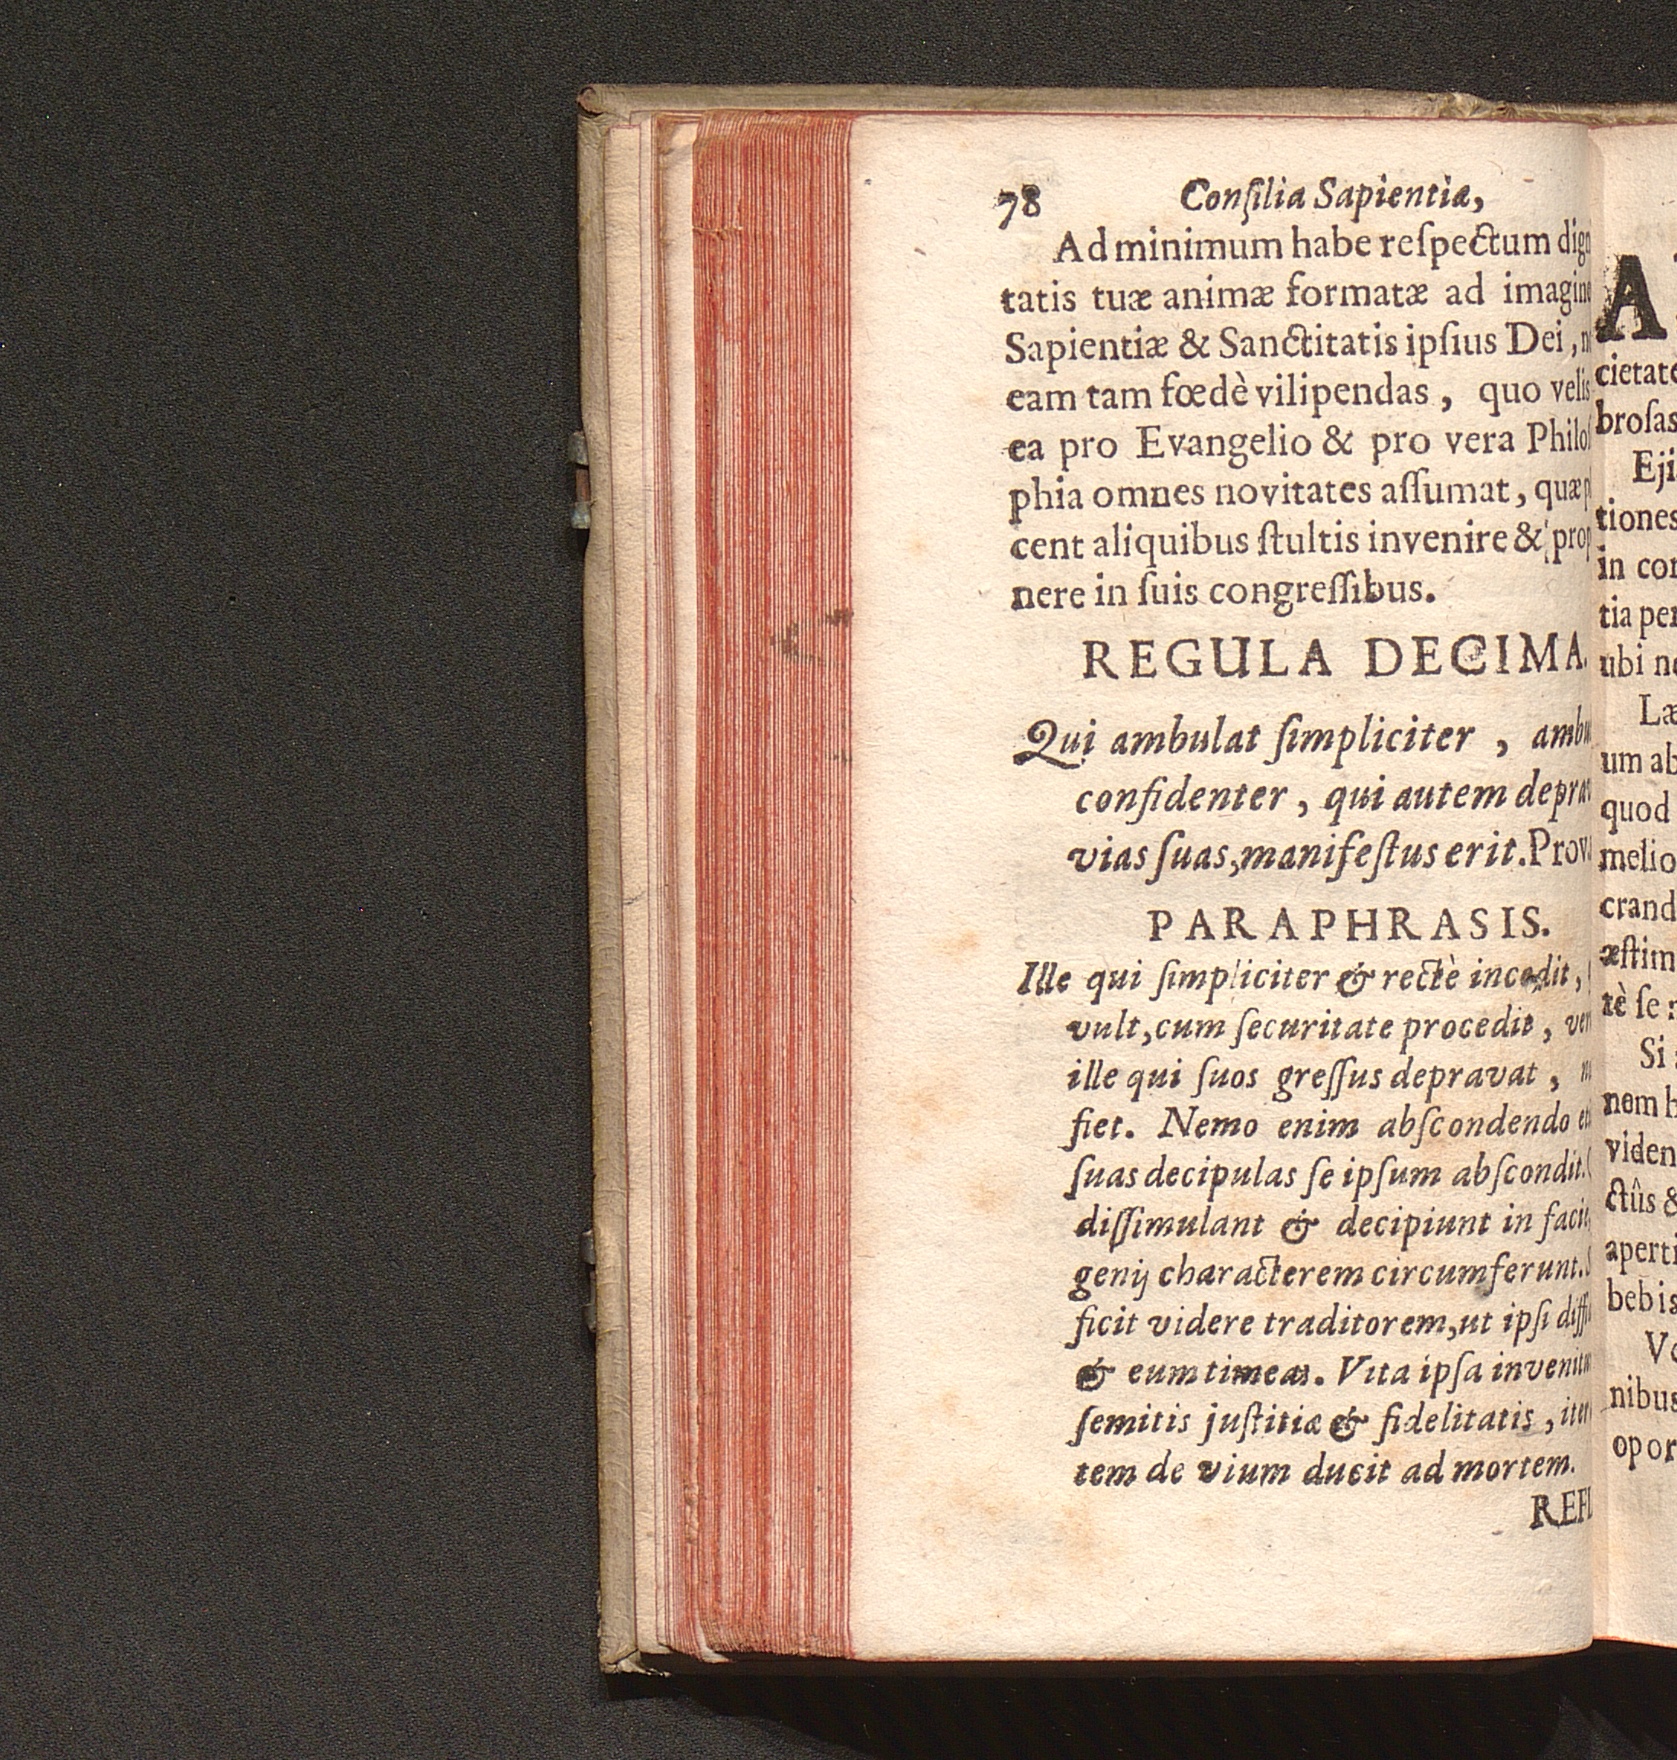 78 Conſilia Sapientiæ,
Ad minimum habe reſpectum dig
tatis tuæ animæ formatæ ad imagin
Sapientiæ & Sanctitatis ipſius Dei,
eam tam fœdè vilipendas, quo velis
ea pro Evangelio & pro vera Philo
phia omnes novitates aſſumat, quæ
cent aliquibus ſtultis invenire & prop
nere in ſuis congreſſibus.
REGULA DECIMA.
Qui ambulat ſimpliciter, ambu
confidenter, qui autem deprav
vias ſuas, manifeſtus erit. Prov.
PARAPHRASIS.
Ille qui ſimpliciter & rectè incedit,
vult, cum ſecuritate procedit, ver
ille qui ſuos greſſus depravat,
fiet. Nemo enim abſcondendo
ſuas decipulas ſe ipſum abſcondit.
diſſimulant & decipiunt in faci
genij characterem circumferunt.
ficit videre traditorem, ut ipſi diffi
& eum timeas. Vita ipſa invenitu
ſemitis juſtitiæ & fidelitatis, iter
tem de vium ducit ad mortem.
REFL
A
cietate
broſas
Eji
tiones
in con
tia per
ubi ne
Læ
um ab
quod
melio
crand
æſtim
tè ſe
Si
nem h
viden
ctûs &
aperti
bebis
Vo
nibus
opor